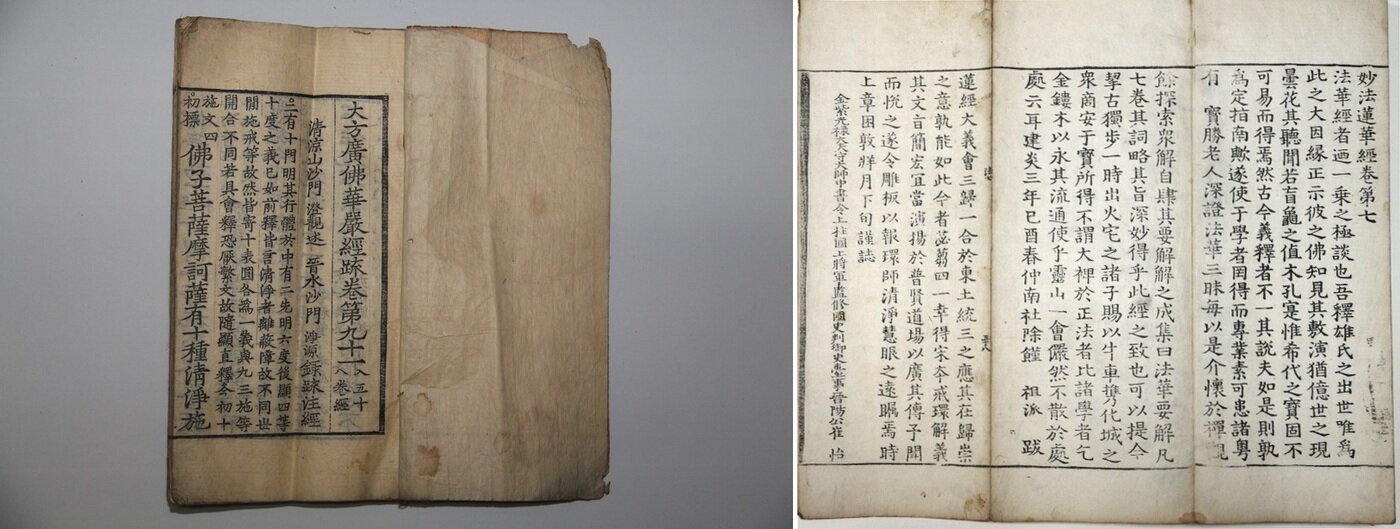 大方廣佛華嚴經䟽卷第九十一
八五十
八卷經
清涼山沙門 澄觀述 晉水沙門 淨源錄䟽注經
二有十門明其行體於中有二先明六度後顯四等
十度之義已如前釋皆言清淨者離蔽障故不同世
間施戒等故然皆寄十表圓各爲一義與九三施等
開合不同若具會釋恐厭繁文故隨顯直釋今初十
施文四
初摽
佛子菩薩摩訶薩有十種清淨施
妙法蓮華經卷第七
法華經者迺一乗之極談也吾釋雄氏之出世唯爲
此之大因縁正示彼之佛知見其敷演猶億世之現
曇花其聽聞若盲龜之值木孔寔惟希代之寶固不
可易而得焉然古今義釋者不一其說夫如是則孰
爲定指南歟遂使于學者罔得而專業素可患諸粤
有 寶勝老人深證法華三昧每以是介懷於禪
餘探索衆解自肆其要解解之成集曰法華要解凡
七卷其詞略其旨深妙得乎此經之致也可以提今
挈古獨步一時出火宅之諸子賜以牛車擕化城之
衆啇安于寶所得不謂大裨於正法者比諸學者乞
金鏤木以永其流通使乎靈山一會儼然不散於處
處云耳建炎三年已酉春仲南社除饉 祖派 跋
蓮經大義會三歸一合於東土統三之應其在歸崇
之意孰能如此今者苾蒭四一幸得宋夲戒環解義
其文言簡宏冝當演揚於普賢道場以廣其傳予聞
而恱之遂令雕板以報環師清淨慧眼之遠矚焉時
上章困敦牂月下旬謹誌
金紫光禄大夫守太師中書令上柱國上將軍監修國史判御史臺事晉陽公崔 怡